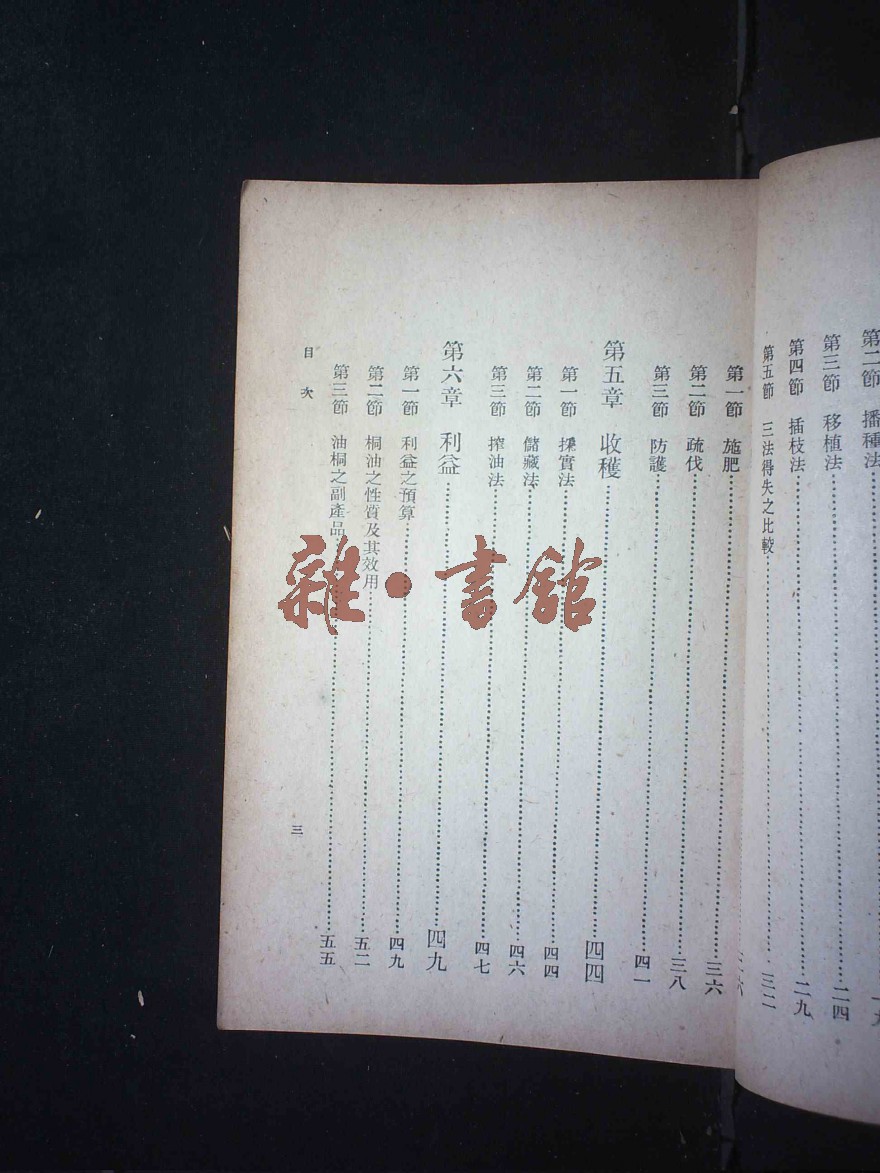 第二節　播種法
第三節　移植法………二四
第四節　插枝法………二九
第五節　三法得失之比較………三二
第一節　施肥………三六
第二節　疏伐………三八
第三節　防護………四一
第五章　收穫………四四
第一節　採實法………四四
第二節　儲藏法………四六
第三節　搾油法………四七
第六章　利益………四九
第一節　利益之預算………四九
第二節　桐油之性質及其效用………五二
第三節　油桐之副產品………五五
目次
三
雜·書館